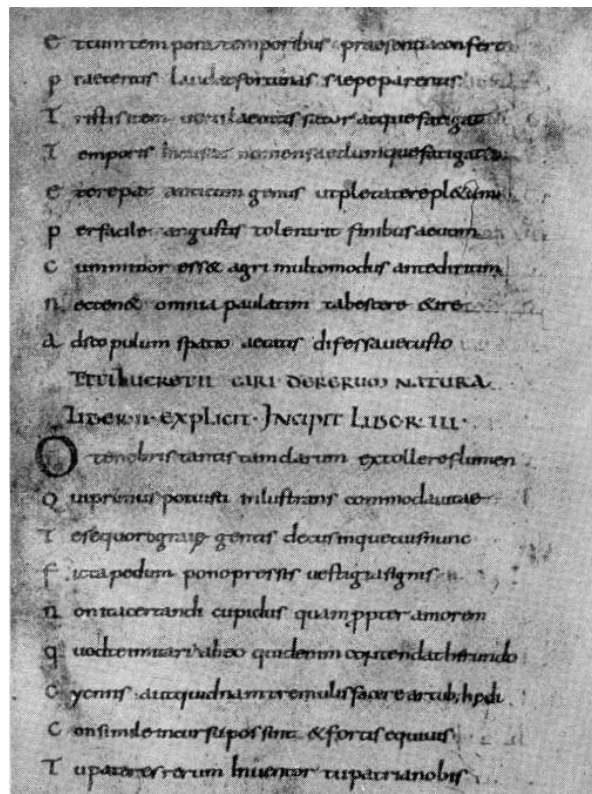 e tcumtempora temporibus praesentiaconfert
p raeteritis laudatfortunas saepeparentis
T ristisitem uetulaeuitis sator atquefatigat
T emporis incusat nomensaeclumquefatigat
e tcrepat anticum genus utpietaterepl&um
p erfacile angustis tolerarit finibus aeuom
c umminor ess& agri multomodus anteuiritim
n ecten& omnia paulatim tabescere &ire
a dscopulum spatio aetatis defessauetusto
TITI LUCRETII CARI DERERUM NATURA
LIBER·II·EXPLICIT·INCIPIT LIBER III·
O tenebristantis tamclarum extollereflumen
Q uiprimus potuisti inlustrans commodauitae
T esequorograiae gentis decusinquetuisnunc
f ictapedum ponopressis uestigiasignis
n onitacertandi cupidus quamppter amorem
q uodteimitari abeo quidenim contendathirundo
C ycnis autquidnamtremulisfacereartub; hedi
C onsimileincursupossint &fortisequiuis
T upateresrerum Inuentor tupatrianobis